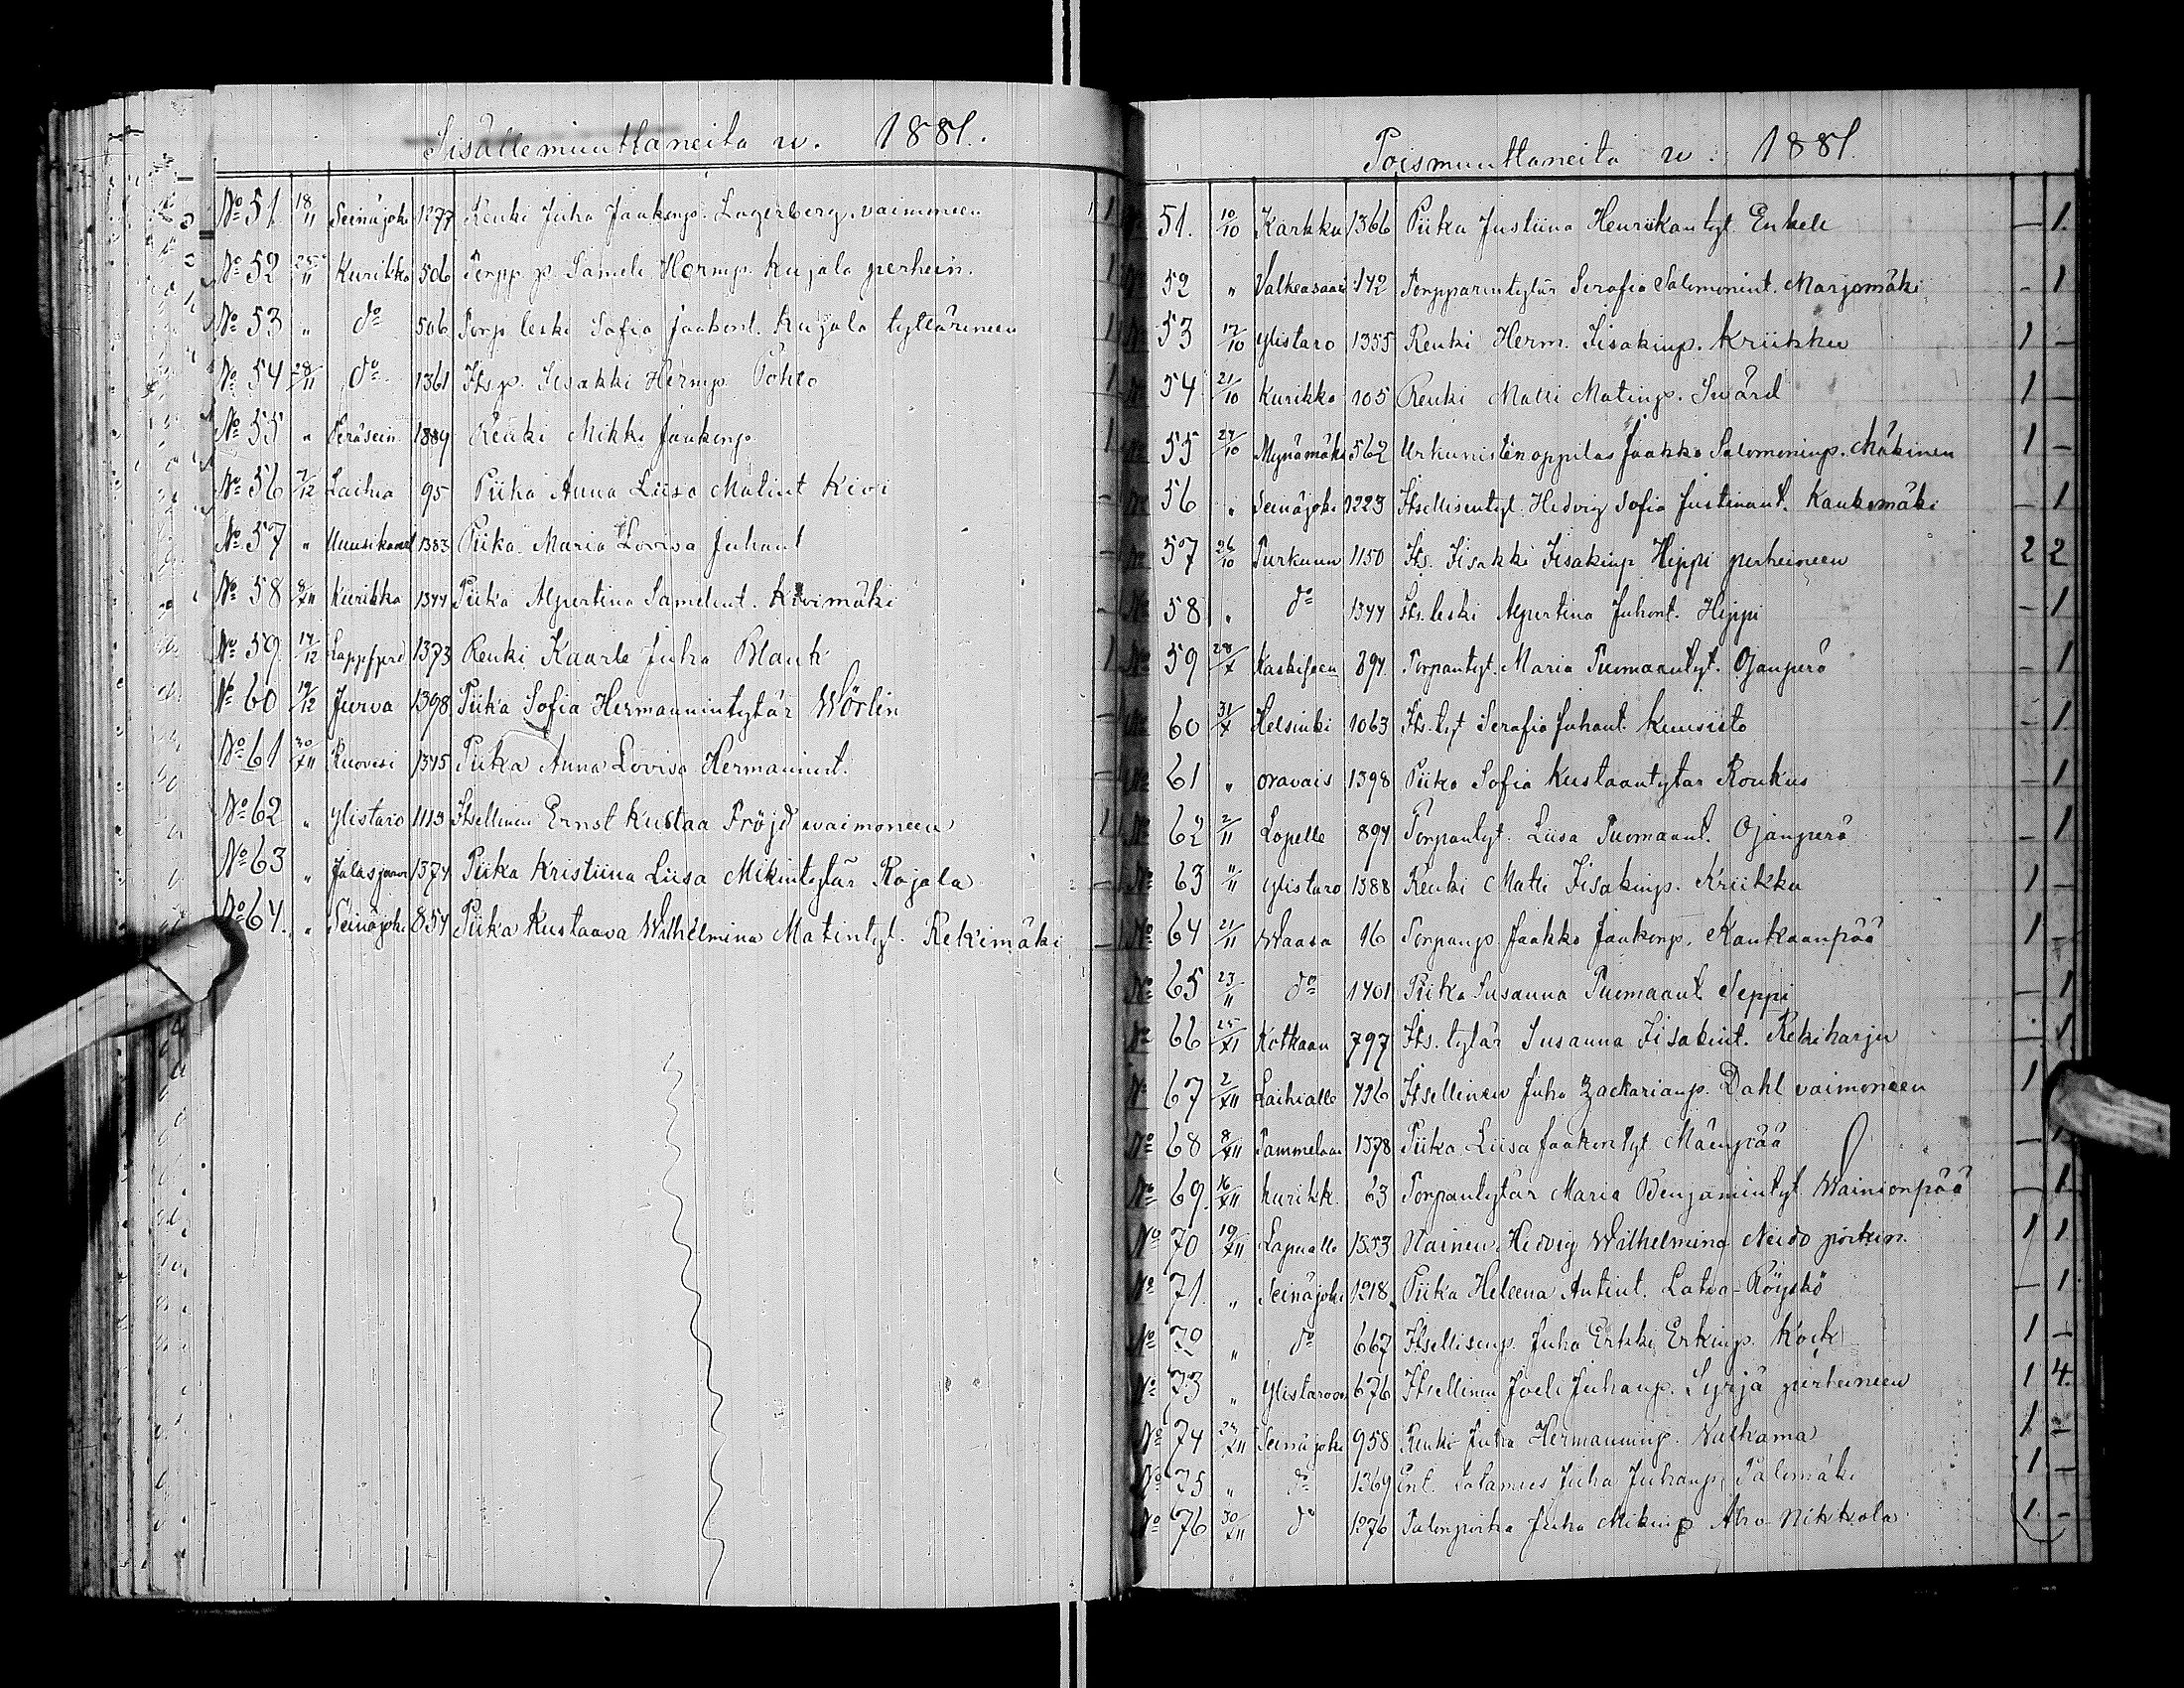 Sisällemuuttaneita w. 1881.
No 51 18/11 Seinäjoki 1277 Renki Juho Jaakonp. Lagerberg vaimoneen 1 1
No 52 25/11 Kurikka 506 Torpp. p. Sameli Hermp. Kujala perhein. 1
No 53 " do 506 Torp leski Sofia Jaakont. Kujala tyttärineen 1
No 54 28/11 do 1361 Its p. Iisakki Hermp. 1
No 55 " Peräsein 1389 Renki Mikki Jaakonp. 1
No 56 7/12 Laihia 95 Piika Anna Liisa Matint Kivi -
No 57 " Uusikaarl 1383 Piika Maria Lovisa Juhant -
No 58 9/XII Kurikka 1344 Piika Alpertina Samelint. Kivimäki -
No 59 14/12 Lappfjerd 1373 Renki Kaarle Juho Blank 1
No 60 19/12 Jurva 1398 Piika Sofia Hermannintytär Wörlin -
No 61 30/XII Ruovesi 1345 Piika Anna Lovisa Hermannint. -
No 62 " Ylistaro 1113 Itsellinen Ernst Kustaa Fröjd vaimoneen 1
No 63 " Jalasjärvi 1374 Piika Kristiina Liisa Mikintytär Rajala -
No 64. " Seinäjoki 854 Piika Kustaava Wilhelmina Matintyt. Rekimäki -
Poismuuttaneita w. 1881.
51. 10/10 Karkku 1366 Piika Justiina Henrikantyt. Enkeli - 1.
52 " Valkeasaari 142 Torpparintytär Serafia Salomonint. Marjomäki - 1
53 17/10 Ylistaro 1355 Renki Herm. Iisakinp. Kriikku 1 -
54 21/10 Kurikka 105 Renki Matti Matinp. Svärd 1 -
55 24/10 Mynämäki 562 Urkunistinoppilas Jaakko Salomoninp. Mäkinen 1 -
56 " Seinäjoki 1223 Itsellisentyt. Hedvig Sofia Justinant. Kaukomäki - 1
No 57 26/10 Purkuun 1150 Its. Iisakki Iisakinp Hippi perheineen 2 2
No 58 " do 1344 Its. leski Alpertina Juhont. Hippi - 1
No 59 28/X 894 Torpantyt. Maria Tuomaantyt. Ojanperä - 1
60 31/X Helsinki 1063 Its. tyt Serafia Juhant. Kuusisto - 1.
No 61 " Oravais 1398 Piika Sofia Kustaantytär Roukus - 1
No 62 2/11 Lopelle 894 Torpantyt. Liisa Tuomaant. Ojanperä - 1
No 63 "/11 Ylistaro 1388 Renki Matti Iisakinp. Kriikku 1 -
No 64 21/11 Waasa 16 Torpanp Jaakko Jaakonp. Kankaanpää 1 -
No 65 23/11 do 1401 Piika Susanna Tuomaant Seppi - 1
No 66 25/XI Kotkaan 797 Its. tytär Susanna Iisakint. Rekiharju - 1
No 67 2/XII Laihialle 796 Itsellinen Juho Zackarianp. Dahl vaimoneen 1
No 68 8/XII Tammelaan 1378 Piika Liisa Jaakontyt Mäenpää - 1
No 69. 16/XII Kurikk. 63 Torpantytär Maria Benjamintyt Wainionpää - 1
No 70 19/XII Lapualle 1553 Nainen Hedvig Wilhelmina Neido poikein. 1 1
No 71. " Seinäjoki 1218 Piika Heleena Antint. Latva-Röyskö - 1
No 72 " do 667 Itsellisenp. Juho Erkki Erkinp. Kock 1 -
No 73 " Ylistaroon 676 Itsellinen Joeli Juhanp. Syrjä perheineen 1 4.
No 74 24/XII Seinäjoki 958 Renki Juha Hermanninp. Valkama 1 -
No 75 " do 1369 Ent. Sotamies Juha Juhanp. Palomäki 1 -
No 76 30/XII do 1276 Talonpoika Juha Mikinp Aho-Nikkola 1. -